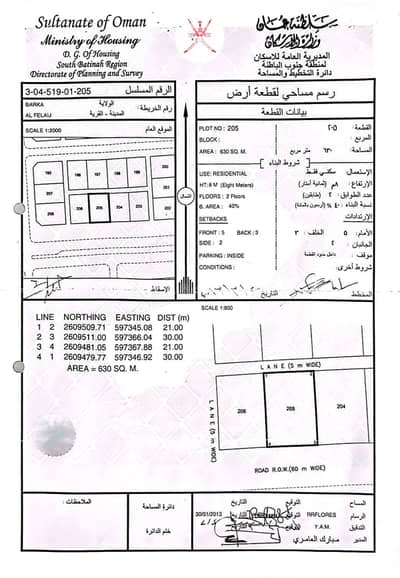 Sultanate of Oman
Ministry of Housing
D. G. Of Housing
South Batinah Region
Directorate of Planning and Survey
سلطنة عمان
وزارة الإسكان
المديرية العامة للإسكان
لمنطقة جنوب الباطنة
دائرة التخطيط والمساحة
3-04-519-01-205 الرقم المسلسل
BARKA الولاية
AL FELAIJ المدينة - القرية رقم الخريطة
SCALE 1:2000 الموقع العام
206 205 204
الشمال
الإسقاط
رسم مساحي لقطعة أرض
بيانات القطعة
PLOT NO : 205 القطعة : ٢٠٥
BLOCK : المربع :
AREA : 630 SQ. M. المساحة : ٦٣٠ متر مربع
شروط البناء
USE: RESIDENTIAL الإستعمال : سكني فقط
HT: 8 M (Eight Meters) الإرتفاع : ٨م (ثمانية أمتار)
FLOORS : 2 Floors عدد الطوابق : ٢ (طابقين)
B. AREA : 40% نسبة البناء : ٤٠٪ (أربعون بالمائة)
SETBACKS الإرتدادات
FRONT : 5 BACK : 3 الأمام : ٥ الخلف : ٣
SIDE : 2 الجانبان : ٢
PARKING : INSIDE موقف : داخل حدود القطعة
CONDITIONS : شروط أخرى :
المخطط
SCALE 1:600
LINE NORTHING EASTING DIST (m)
1 2 2609509.71 597345.08 21.00
2 3 2609511.00 597366.04 30.00
3 4 2609481.05 597367.88 21.00
4 1 2609479.77 597346.92 30.00
AREA = 630 SQ. M.
LANE (5 m WIDE)
LANE (5 m WIDE)
206 205 204
ROAD R.O.W.(60 m WIDE)
الملاحظات :
دائرة المساحة
ختم الدائرة
المساح التوقيع التاريخ
الرسام RRFLORES التوقيع التاريخ 30/01/2013
التدقيق Y.A.M. التوقيع التاريخ
المدير مبارك العامري